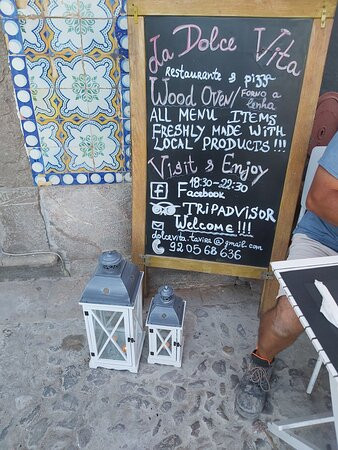 La Dolce Vita
Restaurante & pizza
Wood Oven/Forno a lenha
ALL MENU ITEMS
FRESHLY MADE WITH
LOCAL PRODUCTS!!!
Visit & Enjoy
18:30-22:30
Facebook
TRIPADVISOR
Welcome!!!
dolcevita.tavira@gmail.com
92 05 68 636